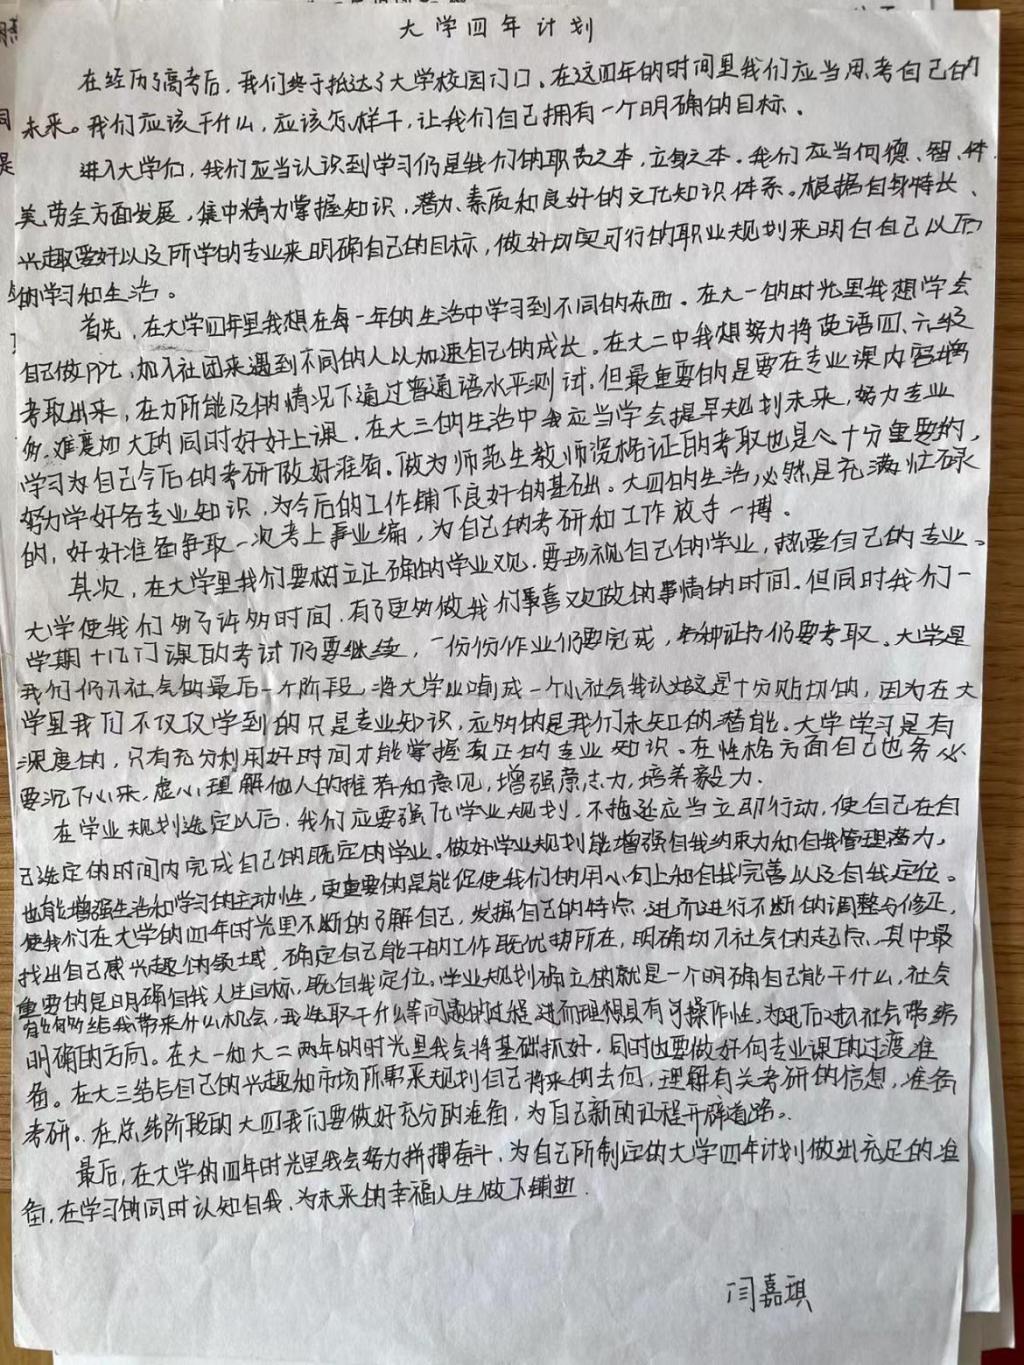 大学四年计划
在经历了高考后，我们终于抵达了大学校园门口。在这四年的时间里我们应当思考自己的
未来。我们应该干什么，应该怎样干，让我们自己拥有一个明确的目标。
进入大学们，我们应当认识到学习仍是我们的职责之本，立身之本。我们应当向德、智、体
美、劳全方面发展，集中精力掌握知识，潜力、素质和良好的文化知识体系。根据自身特长、
兴趣爱好以及所学的专业来明确自己的目标，做好切实可行的职业规划来明白自己以后
的学习和生活。
首先，在大学四年里我想在每一年的生活中学习到不同的东西。在大一的时光里我想学会
自己做PPt，加入社团来遇到不同的人以加速自己的成长。在大二中我想努力将英语四、六级
考取出来，在力所能及的情况下通过普通话水平测试，但最重要的是要在专业课内容增
多，难度加大的同时好好上课。在大三的生活中我应当学会提早规划未来，努力专业
学习为自己今后的考研做好准备。做为师范生教师资格证的考取也是十分重要的，
努力学好各专业知识，为今后的工作铺下良好的基础。大四的生活必然是充满忙碌
的，好好准备争取一次考上事业编，为自己的考研和工作放手一搏。
其次，在大学里我们要树立正确的学业观。要珍视自己的学业，热爱自己的专业。
大学使我们多了许多时间，有了更多做我们喜欢做的事情的时间。但同时我们一
学期十几门课的考试仍要继续，一份份作业仍要完成，各种证书仍要考取。大学是
我们步入社会的最后一个阶段，将大学比喻成一个小社会我认为这是十分贴切的，因为在大
学里我们不仅仅学到的只是专业知识，应多的是我们未知的潜能。大学学习是有
深度的，只有充分利用好时间才能掌握真正的专业知识。在性格方面自己也务必
要沉下心来，虚心理解他人的推荐和意见，增强意志力，培养毅力。
在学业规划选定以后，我们应要强化学业规划，不拖延应当立即行动，使自己在自
己选定的时间内完成自己的既定的学业。做好学业规划能增强自我约束力和自我管理潜力，
也能增强生活和学习的主动性，更重要的是能促使我们的用心向上和自我完善以及自我定位。
使我们在大学的四年时光里不断的了解自己，发掘自己的特点，进而进行不断的调整与修正，
找出自己感兴趣的领域，确定自己能干的工作既优势所在，明确切入社会的起点，其中最
重要的是明确自我人生目标，既自我定位。学业规划确立的就是一个明确自己能干什么，社会
能够给我带来什么机会，我选取干什么等问题的过程，进而理想具有可操作性，为进后进入社会带给
明确的方向。在大一和大二两年的时光里我会将基础抓好，同时也要做好向专业课的过渡准
备。在大三结合自己的兴趣和市场所需来规划自己将来的去向，理解有关考研的信息，准备
考研。在总结阶段的大四我们要做好充分的准备，为自己新的征程开辟道路。
最后，在大学的四年时光里我会努力拼搏奋斗，为自己所制定的大学四年计划做出充足的准
备，在学习的同时认知自我，为未来的幸福人生做下铺垫。
闫嘉琪